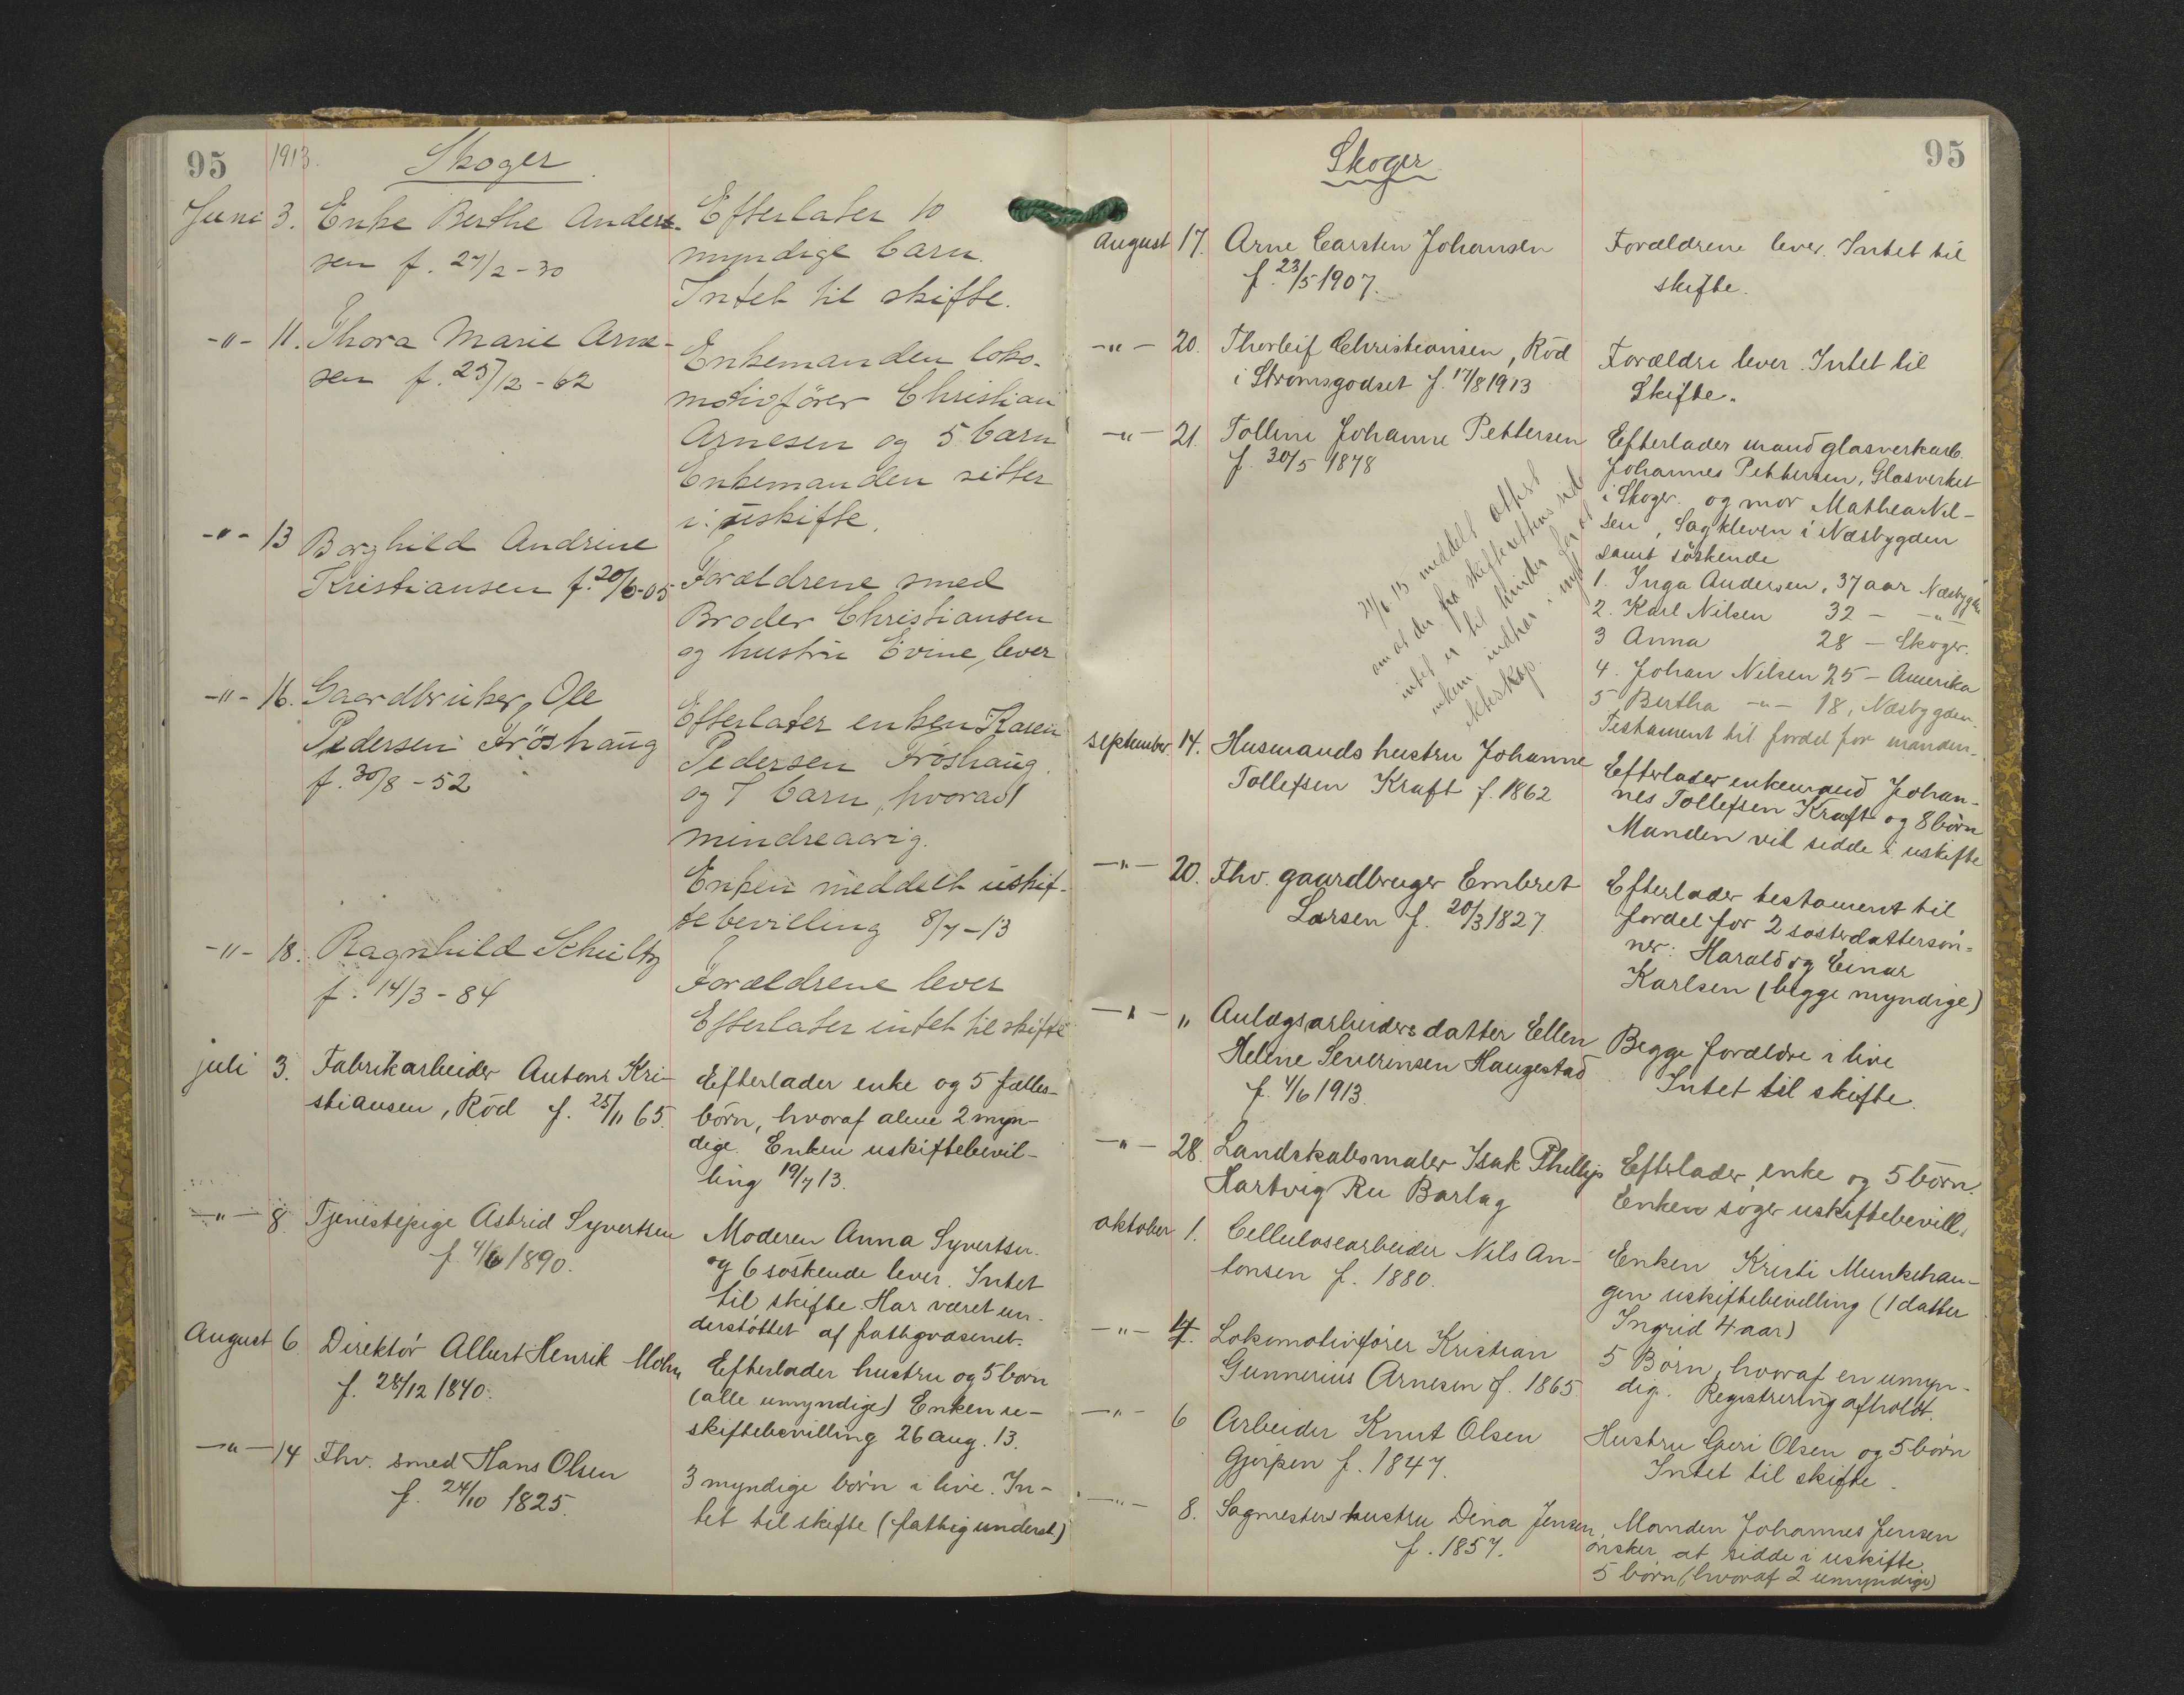 95 1913. Skoger
Juni 3. Enke Berthe Ander-
sen f. 27/2-30
Efterlater 10
myndige barn.
Intet til skifte.
-"- 11. Thora Marie Arne-
sen f. 25/12-62
Enkemanden loko-
motivfører Christian
Arnesen og 5 barn
Enkemanden sitter
i uskifte.
-"- 13 Borghild Andrine
Kristiansen f. 20/6-05
Forældrene smed
Broder Christiansen
og hustru Evine, lever
-"- 16. Gaardbruker, Ole
Pedersen Fröshaug
f. 30/8-52
Efterlater enken Karen
Pedersen Fröshaug
og 7 barn, hvorav 1
mindreaarig.
Enken meddelt uskif-
tebevilling 8/7-13
-"- 18. Ragnhild Schultz
f. 14/3-84
Forældrene lever
Efterlater intet til skifte
juli 3. Fabrikarbeider Antons Kri-
stiansen, Röd f. 25/11 65.
Efterlader enke og 5 fælles-
börn, hvoraf alene 2 myn-
dige. Enken uskiftebevil-
ling 19/7 13.
-"- 8. Tjenestepige Astrid Syvertsen
f. 4/6 1890.
Moderen Anna Syvertsen
og 6 søskende lever. Intet
til skifte. Har været un-
derstöttet af fattigvæsenet.
August 6. Direktör Albert Henrik Mohn
f. 28/12 1840.
Efterlader hustru og 5 born
(alle umyndige) Enken u-
skiftebevilling 26 aug. 13.
-"- 14 Fhv. smed Hans Olsen
f. 24/10 1825.
3 myndige börn i live. In-
tet til skifte (fattigunderst.)
Skoger 95
August 17. Arne Carsten Johansen
f. 23/5 1907.
Forældrene lever. Intet til
skifte.
-"- 20. Thorleif Christiansen, Röd
i Strømsgodset f. 17/8 1913
Forældre lever. Intet til
Skifte.
-"- 21. Tolline Johanne Pettersen
f. 30/5 1878
21/6 13 meddelt attest
om at der fra skifterettens side
intet er til hinder for at
enkem indtrær i nyt
ekteskap.
Efterlader mand glasverkarb.
Johannes Pettersen, Glasverket
i Skoger. og mor Mathea Nil-
sen, Sagkleven i Næsbygden
samt söskende
1. Inga Andersen, 37 aar Næsbygden
2. Karl Nilsen 32 - -"-
3 Anna 28 - Skoger.
4. Johan Nilsen 25 - Amerika
5 Bertha -"- 18, Næsbygden.
Testament til fordel for manden.
september 14. Husmands hustru Johanne
Tollefsen Kraft f. 1862
Efterlader enkemand Johan-
nes Tollefsen Kraft og 8 börn
Manden vil sidde i uskifte
-"- 20. Fhv. gaardbruger Embret
Larsen f. 20/3 1827.
Efterlader testament til
fordel for 2 søsterdattersön-
ner: Harald og Einar
Karlsen (begge myndige)
-"- " Anlægsarbeiders datter Ellen
Heline Severinsen Haugestad
f. 4/6 1913.
Begge forældre i live
Intet til skifte.
-"- 28. Landskabsmaler Isak Phillip
Hartvig Ree Barlag
Efterlader enke og 5 börn.
Enken söger uskiftebevill.
oktober 1. Cellulosearbeider Nils An-
tonsen f. 1880.
Enken Kristi Munkehau-
gen uskiftebevilling (1 datter
Ingrid 4 aar)
-"- 4. Lokomotivförer Kristian
Gunnerius Arnesen f. 1865
5 Börn, hvoraf en umyn-
dig. Registrering afholdt.
-"- 6 Arbeider Knut Olsen
Gjerpen f. 1847.
Hustru Geri Olsen og 5 börn
Intet til skifte.
-"- 8. Sagmesters hustru Dina Jensen,
f. 1857.
Manden Johannes Jensen
önsker at sidde i uskifte
5 börn (hvoraf 2 umyndige)